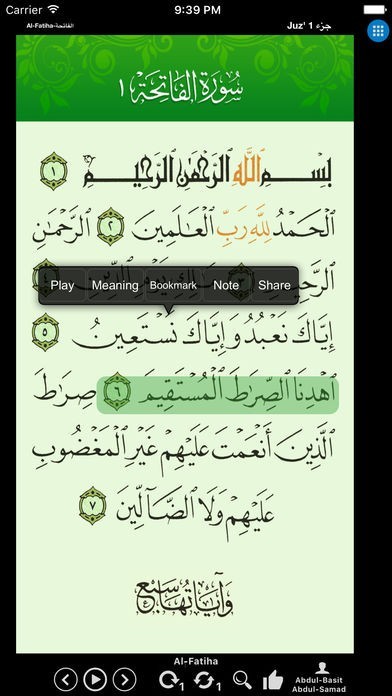 Carrier 9:39 PM
Al-Fatiha-الفاتحة Juz' 1 جزء
سُورَةُ الفَاتِحَةِ ١
بِسْمِ اللَّهِ الرَّحْمَٰنِ الرَّحِيمِ ١
الْحَمْدُ لِلَّهِ رَبِّ الْعَالَمِينَ ٢ الرَّحْمَٰنِ
الرَّحِيمِ
Play Meaning Bookmark Note Share
إِيَّاكَ نَعْبُدُ وَإِيَّاكَ نَسْتَعِينُ ٥
اهْدِنَا الصِّرَاطَ الْمُسْتَقِيمَ ٦ صِرَاطَ
الَّذِينَ أَنْعَمْتَ عَلَيْهِمْ غَيْرِ الْمَغْضُوبِ
عَلَيْهِمْ وَلَا الضَّالِّينَ ٧
وَآيَاتُهَا سَبْعٌ
Al-Fatiha
1 1
Abdul-Basit
Abdul-Samad